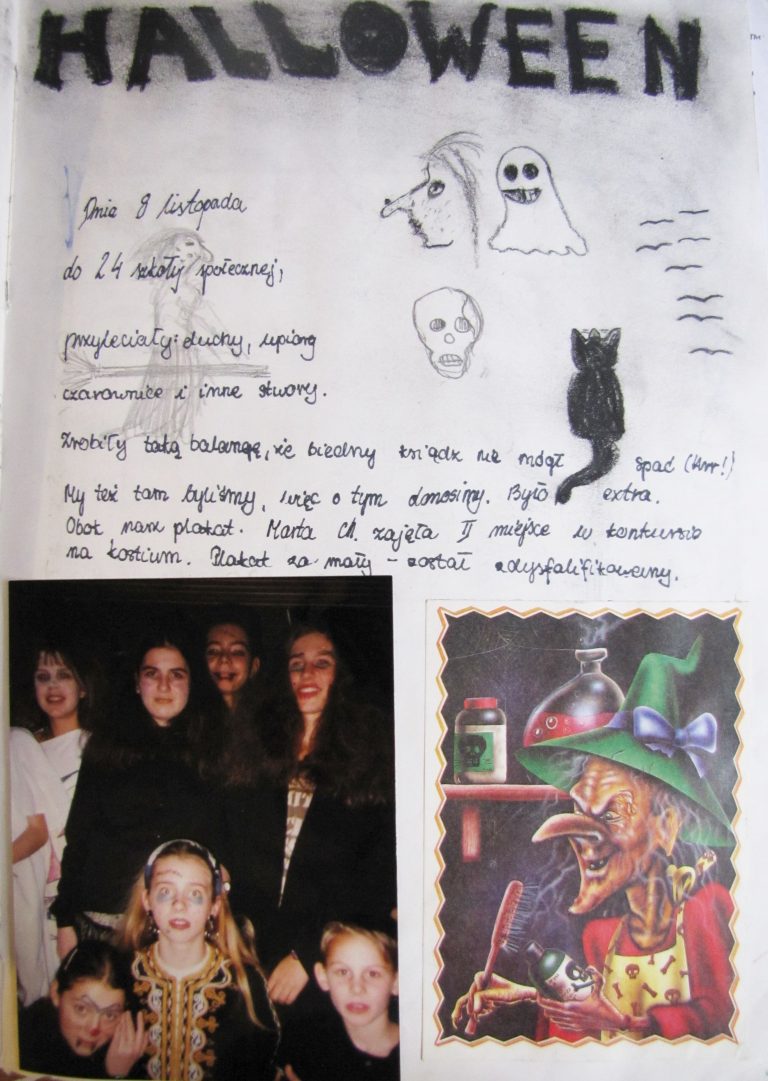 HALLOWEEN
Dnia 8 listopada
do 24 szkoły społecznej,
przyleciały: duchy, upiory
czarownice i inne stwory.
Zrobiły taką balangę, że biedny ksiądz nie mógł spać (Wrr!)
My też tam byliśmy, więc o tym donosimy. Było extra.
Obok nasz plakat. Marta Ch. zajęła II miejsce w konkursie
na kostium. Plakat za mały - został zdyskfalifikowany.
TM